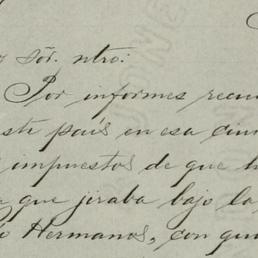 sõr. ntro:
Por informes
este país en esa
impuestos de que
que jiraba bajo la
Hermanos, con